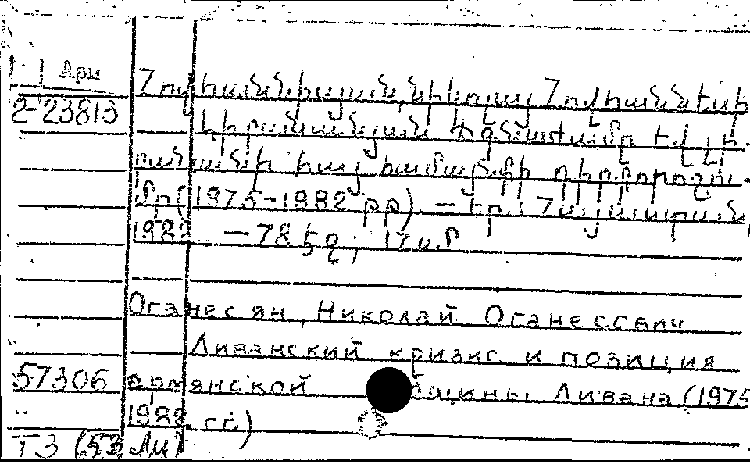 Արև Հովհաննիսյան, Նիկոլայ Հովհաննեսի
2-23813 Լիբանանյան ճգնաժամը և լի-
բանանի հայ համայնքի դիրքորոշու-
մը (1975-1982 թթ). — Եր.: Հայաստան,
1982 — 78 էջ; 17 սմ
Оганесян, Николай Оганесович
Ливанский кризис и позиция
57306 армянской общины Ливана (1975
1982 гг.)
ТЗ (5З Ли)